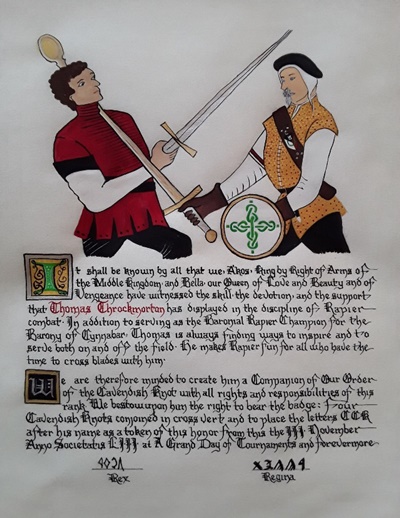 It shall be known by all that we, Akos, King by Right of Arms of
the Middle Kingdom and Bella our Queen of Love and Beauty and of
Vengeance have witnessed the skill, the devotion, and the support
that Thomas Throckmorton has displayed in the discipline of Rapier
combat. In addition to serving as the Baronial Rapier Champion for the
Barony of Cynnabar. Thomas is always finding ways to inspire and to
serve both on and off the field. He makes Rapier fun for all who have the
time to cross blades with him.
We are therefore minded to create him a Companion of Our Order
of the Cavendish Knot with all rights and responsibilities of this
rank. We bestow upon him the right to bear the badge: Four
Cavendish Knots conjoined in cross vert and to place the letters CCK
after his name as a token of this honor from this the III November
Anno Societatis LIII at A Grand Day of Tournaments and forevermore
Rex
Regina